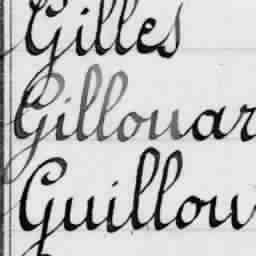 Gilles
Gillouar
Guillou